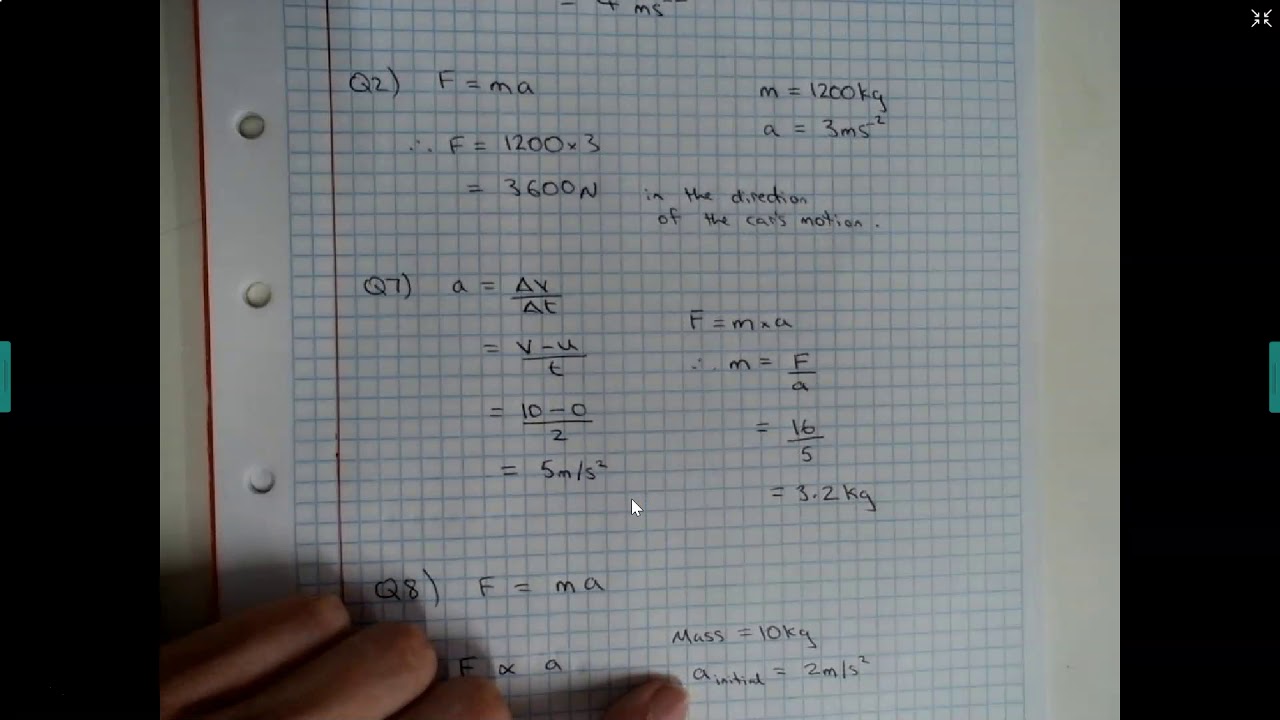 = 4 ms
Q2) F = ma
m = 1200kg
a = 3ms⁻²
∴ F = 1200 × 3
= 3600N in the direction
of the car's motion.
Q7) a = Δv/Δt
= v - u/t
= 10 - 0/2
= 5m/s²
F = m × a
∴ m = F/a
= 16/5
= 3.2kg
Q8) F = ma
F ∝ a
Mass = 10kg
a initial = 2m/s²